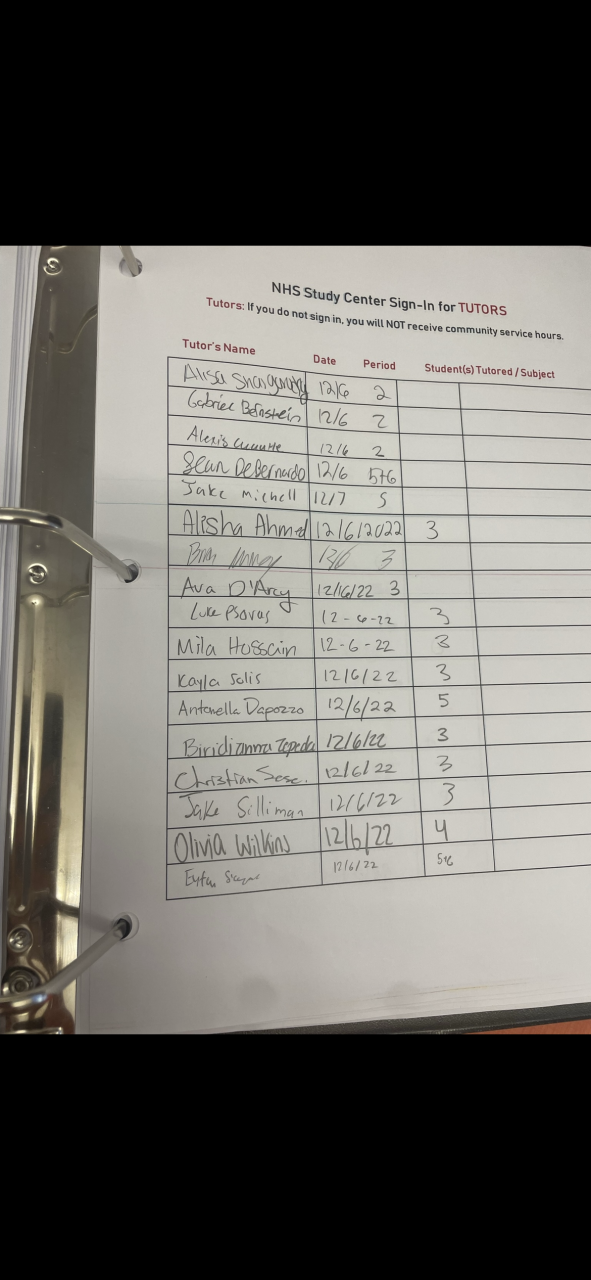 NHS Study Center Sign-In for TUTORS
Tutors: If you do not sign in, you will NOT receive community service hours.
Tutor's Name Date Period Student(s) Tutored / Subject
Alisa 12/6 2
Gabriel Bernstein 12/6 2
Alexis 12/6 2
Sean DeBernardo 12/6 5+6
Jake Michell 12/7 5
Alisha Ahmed 12/6/2022 3
3
Ava D'Arcy 12/6/22 3
Luke Psoras 12-6-22 3
Mila Hossain 12-6-22 3
Kayla Solis 12/6/22 3
Antonella Dapozzo 12/6/22 5
Biridianna Zepeda 12/6/22 3
Christian 12/6/22 3
Jake Silliman 12/6/22 3
Olivia Wilkins 12/6/22 4
12/6/22